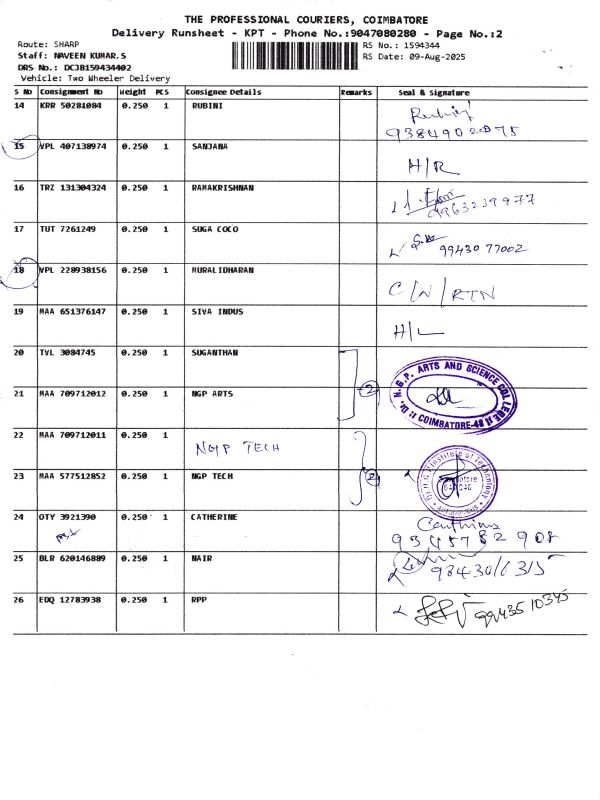 THE PROFESSIONAL COURIERS, COIMBATORE
Delivery Runsheet - KPT - Phone No.:9047080280 - Page No.:2
Route: SHARP
Staff: NAVEEN KUMAR.S
DRS No.: DCJB159434402
Vehicle: Two Wheeler Delivery
RS No.: 1594344
RS Date: 09-Aug-2025
S No Consignment No Weight PCS Consignee Details Remarks Seal & Signature
14 KRR 50281084 0.250 1 RUBINI
15 VPL 407138974 0.250 1 SANJANA H/R
16 TRZ 131304324 0.250 1 RAMAKRISHNAN 9963239977
17 TUT 7261249 0.250 1 SUGA COCO 9943077002
18 VPL 228938156 0.250 1 MURALIDHARAN C/N/RTN
19 MAA 651376147 0.250 1 SIVA INDUS H/L
20 TVL 3084745 0.250 1 SUGANTHAN
21 MAA 709712012 0.250 1 NGP ARTS 2
Dr. N.G.P. ARTS AND SCIENCE COLLEGE
COIMBATORE-48
22 MAA 709712011 0.250 1 NGP TECH
23 MAA 577512852 0.250 1 NGP TECH 2
Institute of Technology
24 OTY 3921390 0.250 1 CATHERINE
25 BLR 620146889 0.250 1 NAIR
26 EDQ 12783938 0.250 1 RPP 9943510345